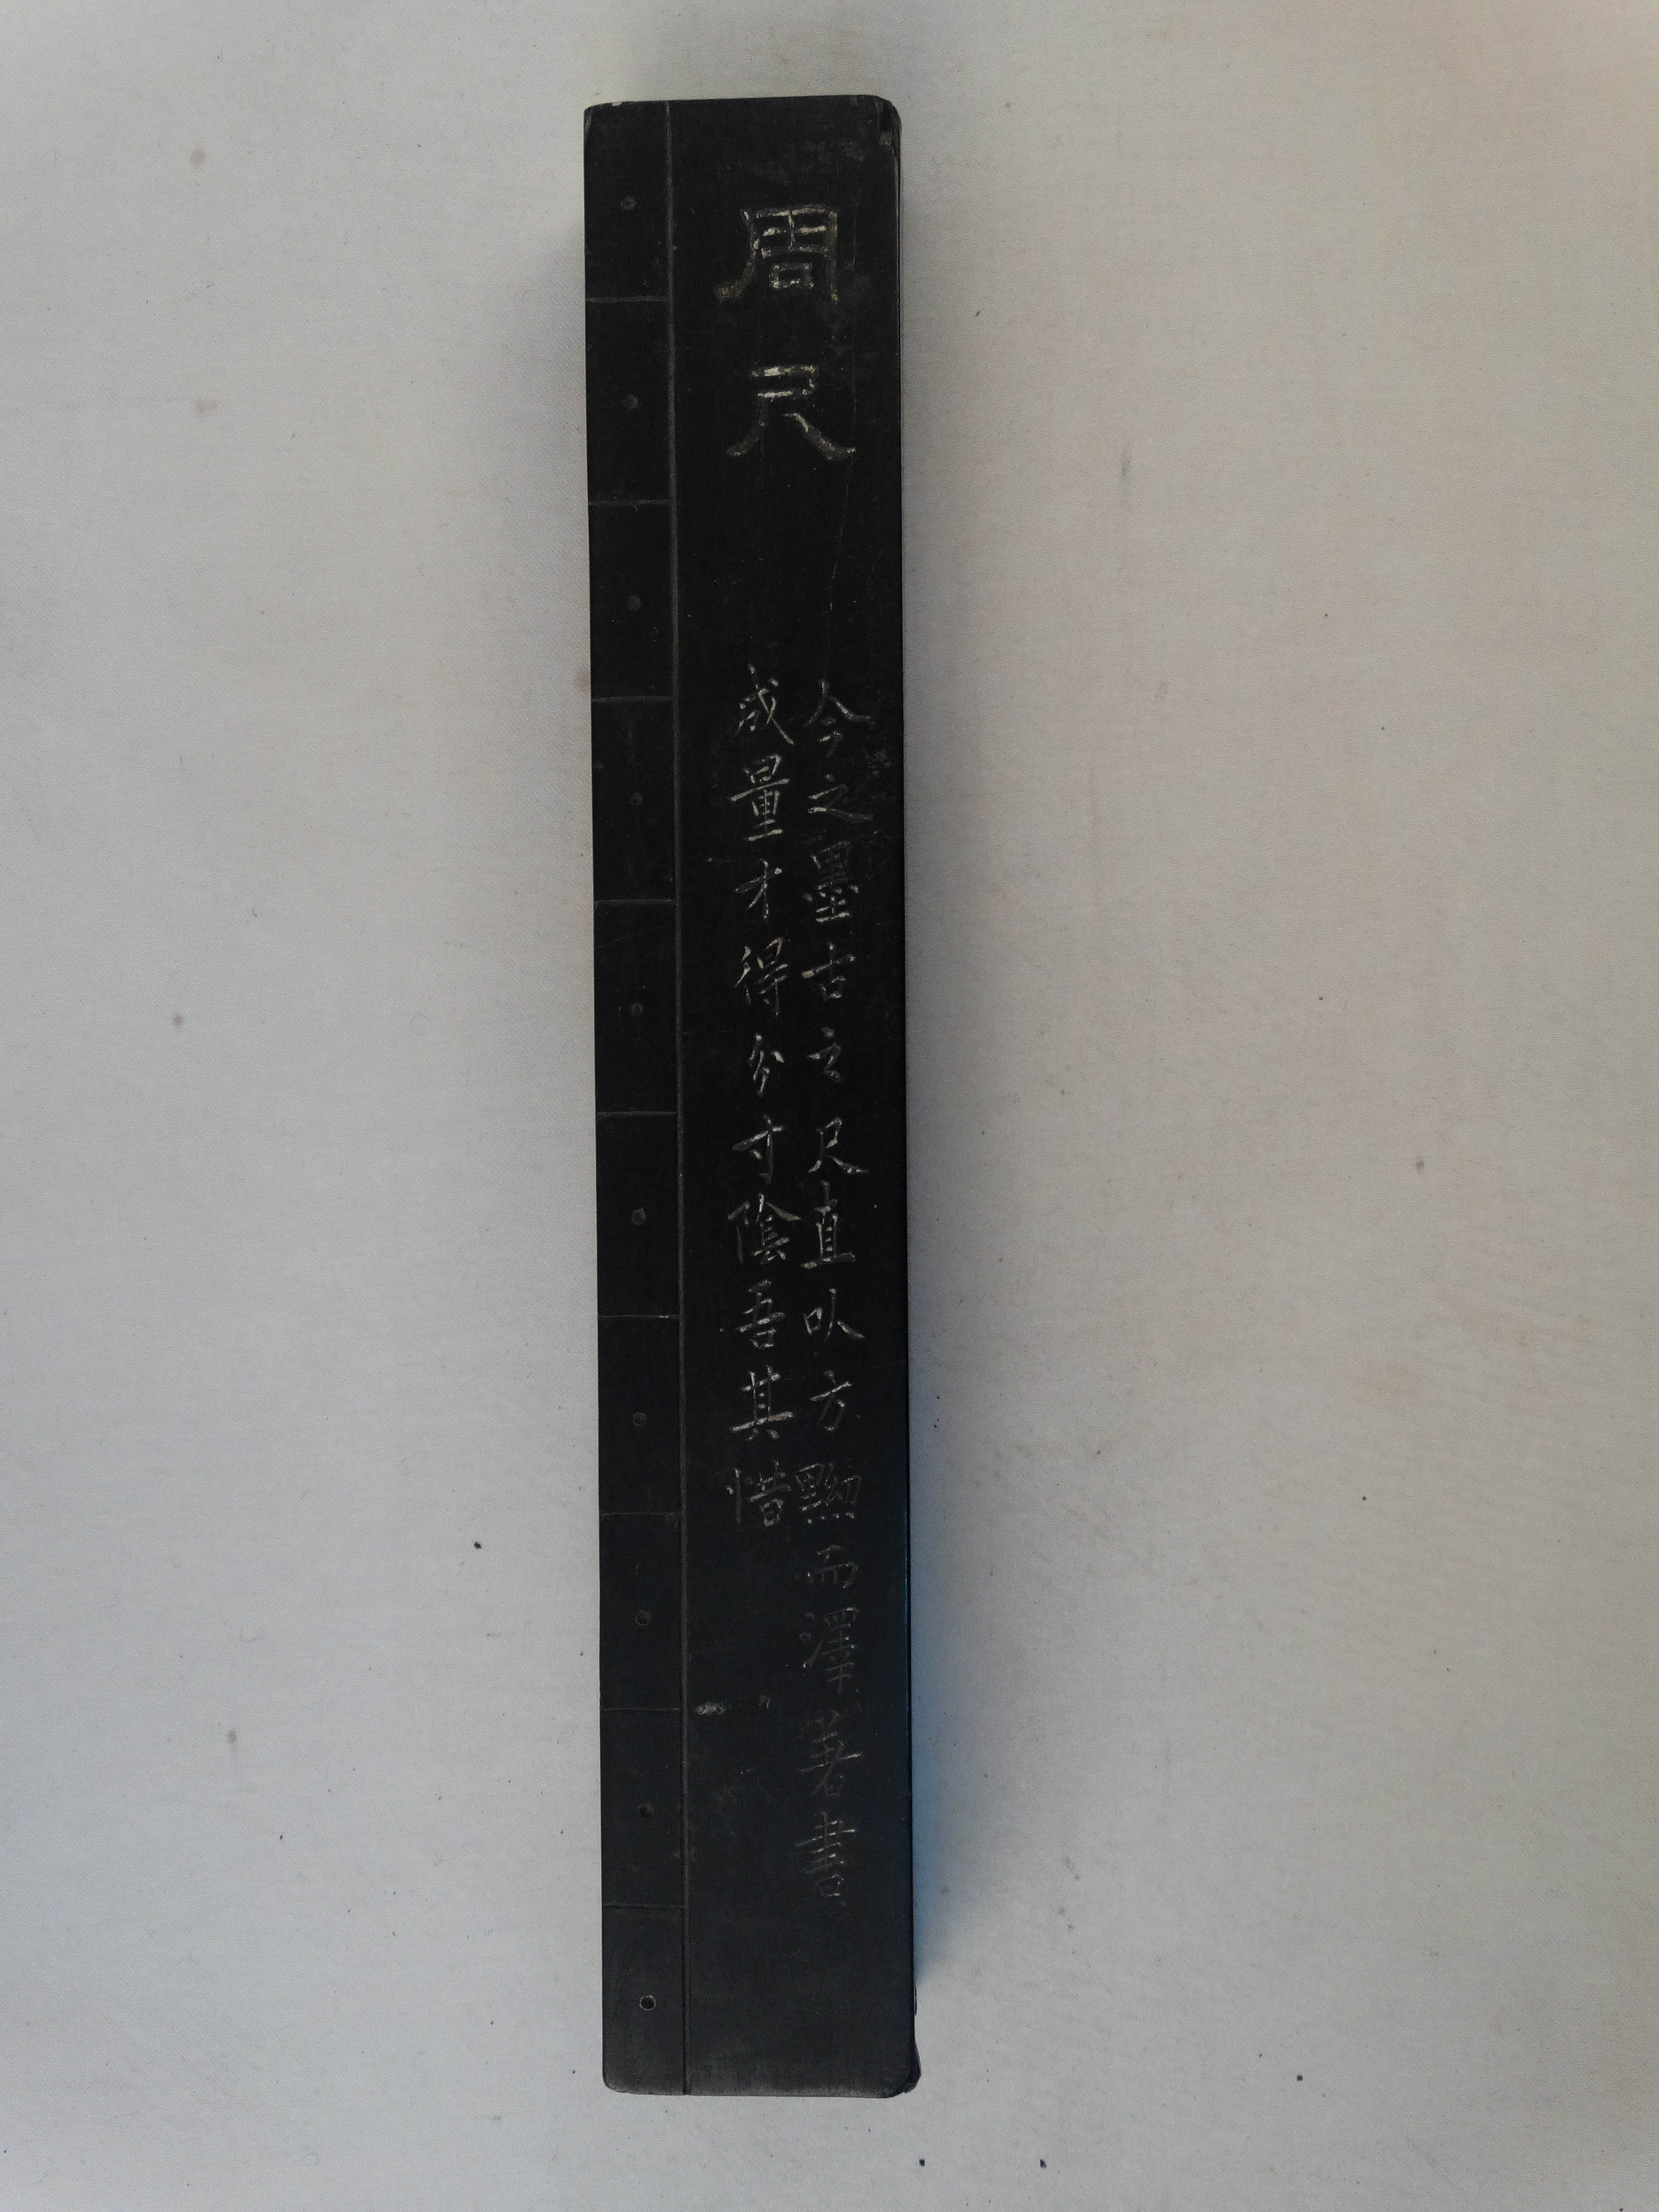 周尺
今之墨古之尺直以方黝而澤著書
成量才得分寸陰吾其惜